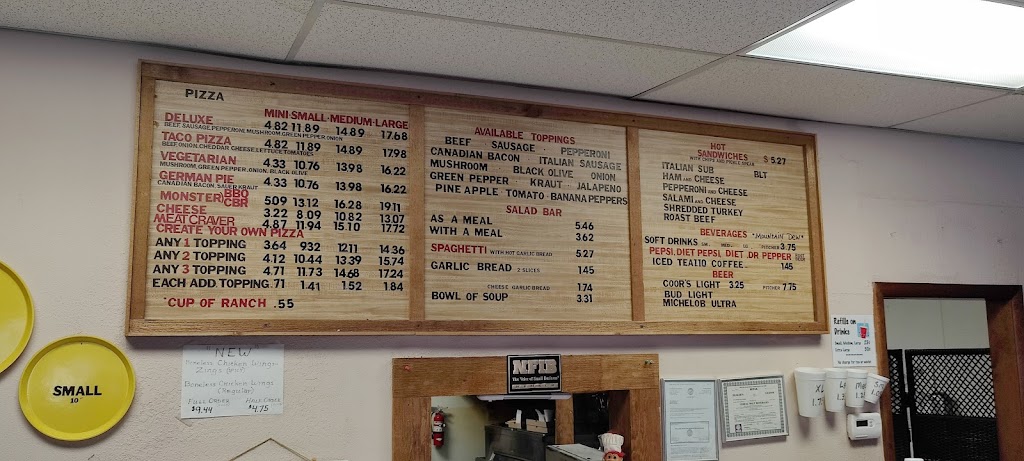 PIZZA
MINI SMALL-MEDIUM-LARGE
DELUXE 4.82 11.89 14.89 17.68
BEEF, SAUSAGE, PEPPERONI, MUSHROOM, GREEN PEPPER, ONION
TACO PIZZA 4.82 11.89 14.89 17.98
BEEF, ONION, CHEDDAR CHEESE, LETTUCE, TOMATOES
VEGETARIAN 4.33 10.76 13.98 16.22
MUSHROOM, GREEN PEPPER, ONION, BLACK OLIVE
GERMAN PIE 4.33 10.76 13.98 16.22
CANADIAN BACON, SAUER KRAUT
MONSTER BBQ CBR 5.09 13.12 16.28 19.11
CHEESE 3.22 8.09 10.82 13.07
MEAT CRAVER 4.87 11.94 15.10 17.72
CREATE YOUR OWN PIZZA
ANY 1 TOPPING 3.64 9.32 12.11 14.36
ANY 2 TOPPING 4.12 10.44 13.39 15.74
ANY 3 TOPPING 4.71 11.73 14.68 17.24
EACH ADD TOPPING .71 1.41 1.52 1.84
*CUP OF RANCH .55
AVAILABLE TOPPINGS
BEEF SAUSAGE PEPPERONI
CANADIAN BACON ITALIAN SAUSAGE
MUSHROOM BLACK OLIVE ONION
GREEN PEPPER KRAUT JALAPENO
PINE APPLE TOMATO BANANA PEPPERS
SALAD BAR
AS A MEAL 5.46
WITH A MEAL 3.62
SPAGHETTI WITH HOT GARLIC BREAD 5.27
GARLIC BREAD 2 SLICES 1.45
CHEESE GARLIC BREAD 1.74
BOWL OF SOUP 3.31
HOT
SANDWICHES $5.27
WITH CHIPS AND PICKLE SPEAR
ITALIAN SUB BLT
HAM AND CHEESE
PEPPERONI AND CHEESE
SALAMI AND CHEESE
SHREDDED TURKEY
ROAST BEEF
BEVERAGES *MOUNTAIN DEW*
SOFT DRINKS SM. MED. LG. PITCHER 3.75
PEPSI, DIET PEPSI, DIET DR PEPPER
ICED TEA 1.10 COFFEE 1.45
BEER
COOR'S LIGHT 3.25 PITCHER 7.75
BUD LIGHT
MICHELOB ULTRA
"NEW"
Boneless Chicken Wings
Boneless Chicken Wings
(Regular)
FULL ORDER HALF ORDER
$9.44 $4.75
SMALL
10"
NFIB
The Voice of Small Business
Refills on
Drinks